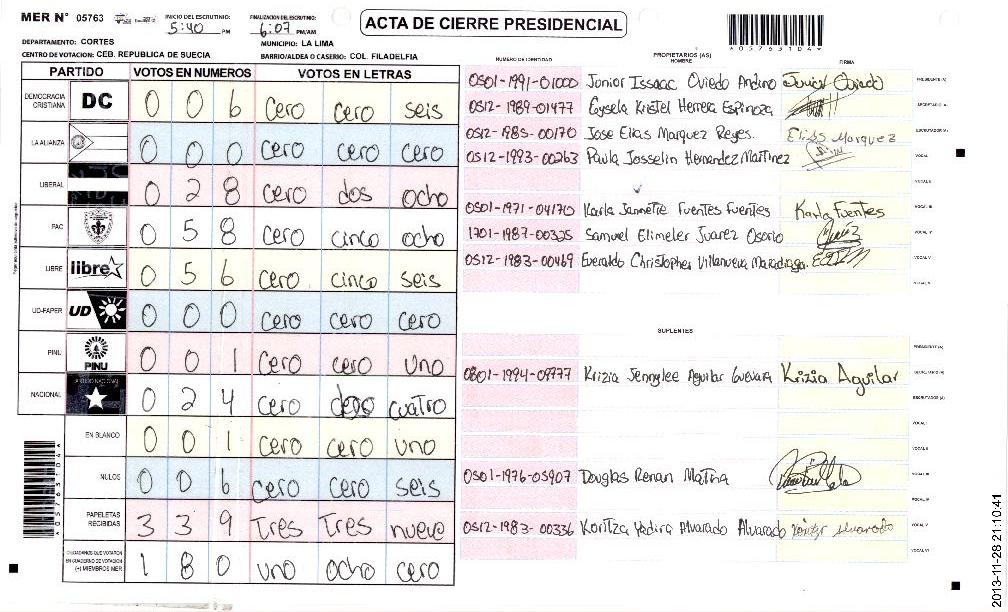 MER N° 05763
INICIO DEL ESCRUTINIO:
5:40 PM
FINALIZACION DEL ESCRUTINIO:
6:07 PM/AM
ACTA DE CIERRE PRESIDENCIAL
*05763104*
DEPARTAMENTO: CORTES
MUNICIPIO: LA LIMA
CENTRO DE VOTACION: CEB. REPUBLICA DE SUECIA
BARRIO/ALDEA O CASERIO: COL. FILADELFIA
PARTIDO VOTOS EN NUMEROS VOTOS EN LETRAS
DEMOCRACIA CRISTIANA DC 0 0 6 cero cero seis
LA ALIANZA 0 0 0 cero cero cero
LIBERAL 0 2 8 cero dos ocho
PAC 0 5 8 cero cinco ocho
LIBRE libre 0 5 6 cero cinco seis
UD-FAPER UD 0 0 0 cero cero cero
PINU PINU 0 0 1 cero cero uno
NACIONAL PARTIDO NACIONAL 0 2 4 cero dos cuatro
EN BLANCO 0 0 1 cero cero uno
NULOS 0 0 6 cero cero seis
PAPELETAS RECIBIDAS 3 3 9 Tres Tres nueve
CIUDADANOS QUE VOTARON EN CUADERNO DE VOTACION (+) MIEMBROS MER 1 8 0 uno ocho cero
*05763104*
PROPIETARIOS (AS)
NUMERO DE IDENTIDAD NOMBRE FIRMA
0501-1991-01000 Junior Issaac Oviedo Andino Junior Oviedo PRESIDENTE (A)
0512-1989-01477 Gysela Kristel Herrera Espinoza SECRETARIO (A)
0512-1985-00170 Jose Elias Marquez Reyes. Elias Marquez ESCRUTADOR (A)
0512-1993-00263 Paula Josselin Hernandez Martinez VOCAL I
VOCAL II
0501-1971-04170 Karla Jannette Fuentes Fuentes Karla Fuentes VOCAL III
1701-1987-00325 Samuel Elimeler Juarez Osorio VOCAL IV
0512-1983-00469 Everaldo Christopher Villanueva VOCAL V
VOCAL VI
SUPLENTES
PRESIDENTE (A)
0801-1994-09777 Krizia Jennylee Aguilar Guevara Krizia Aguilar SECRETARIO (A)
ESCRUTADOR (A)
VOCAL I
VOCAL II
0501-1976-05907 Douglas Renan Matina VOCAL III
VOCAL IV
0512-1983-00336 Koritza Yadira Alvarado Alvarado VOCAL V
VOCAL VI
2013-11-28 21:10:41